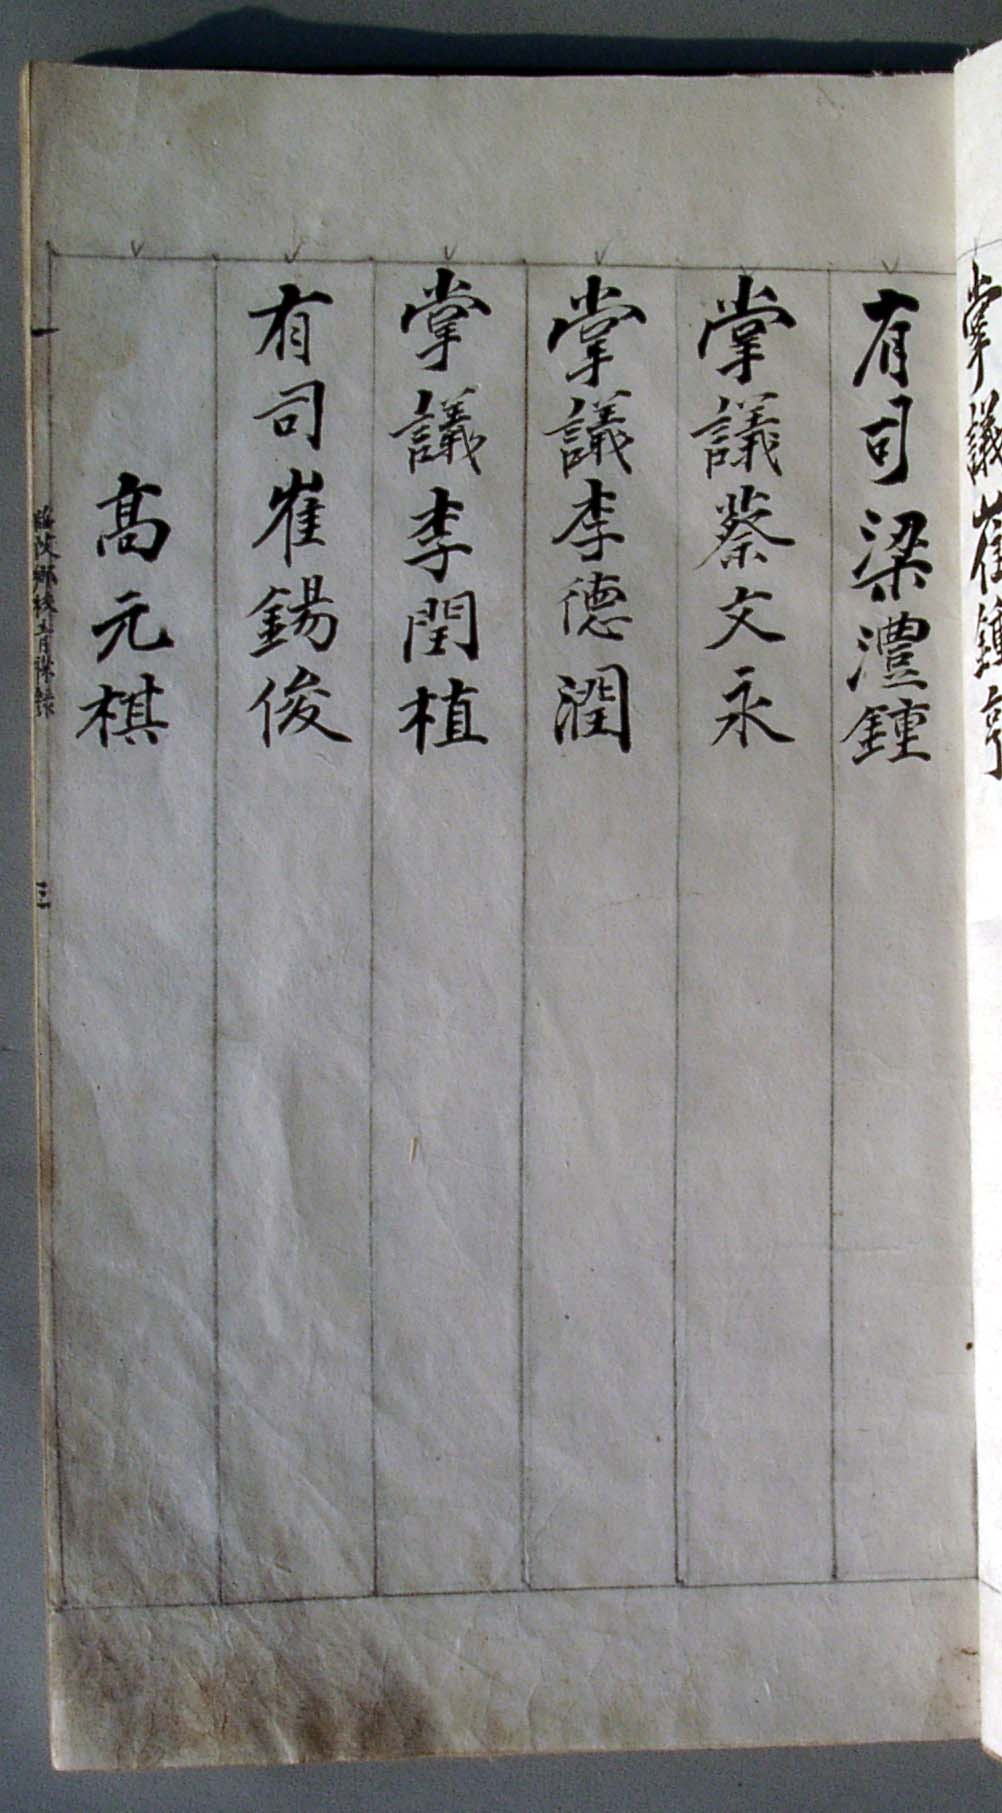 掌議崔鍾亨
有司梁澧鍾
掌議蔡文永
掌議李德潤
掌議李閏植
有司崔錫俊
高元棋
鄕校靑襟錄
三